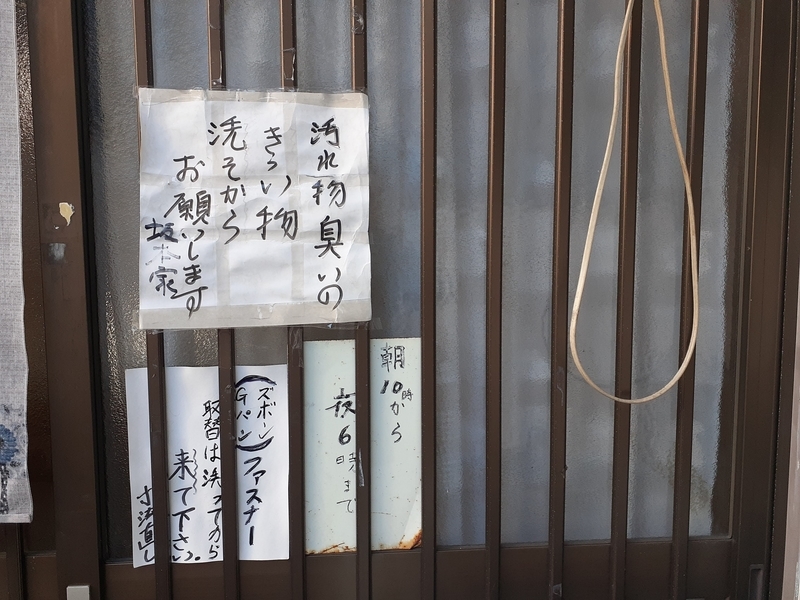 汚水物臭いの
きらい物
洗そから
お願いします
坂本家
朝10時から
夜6時まで
(ズボン
Gパン)ファスナー
取替は洗ってから
来て下さい。
寸法直し